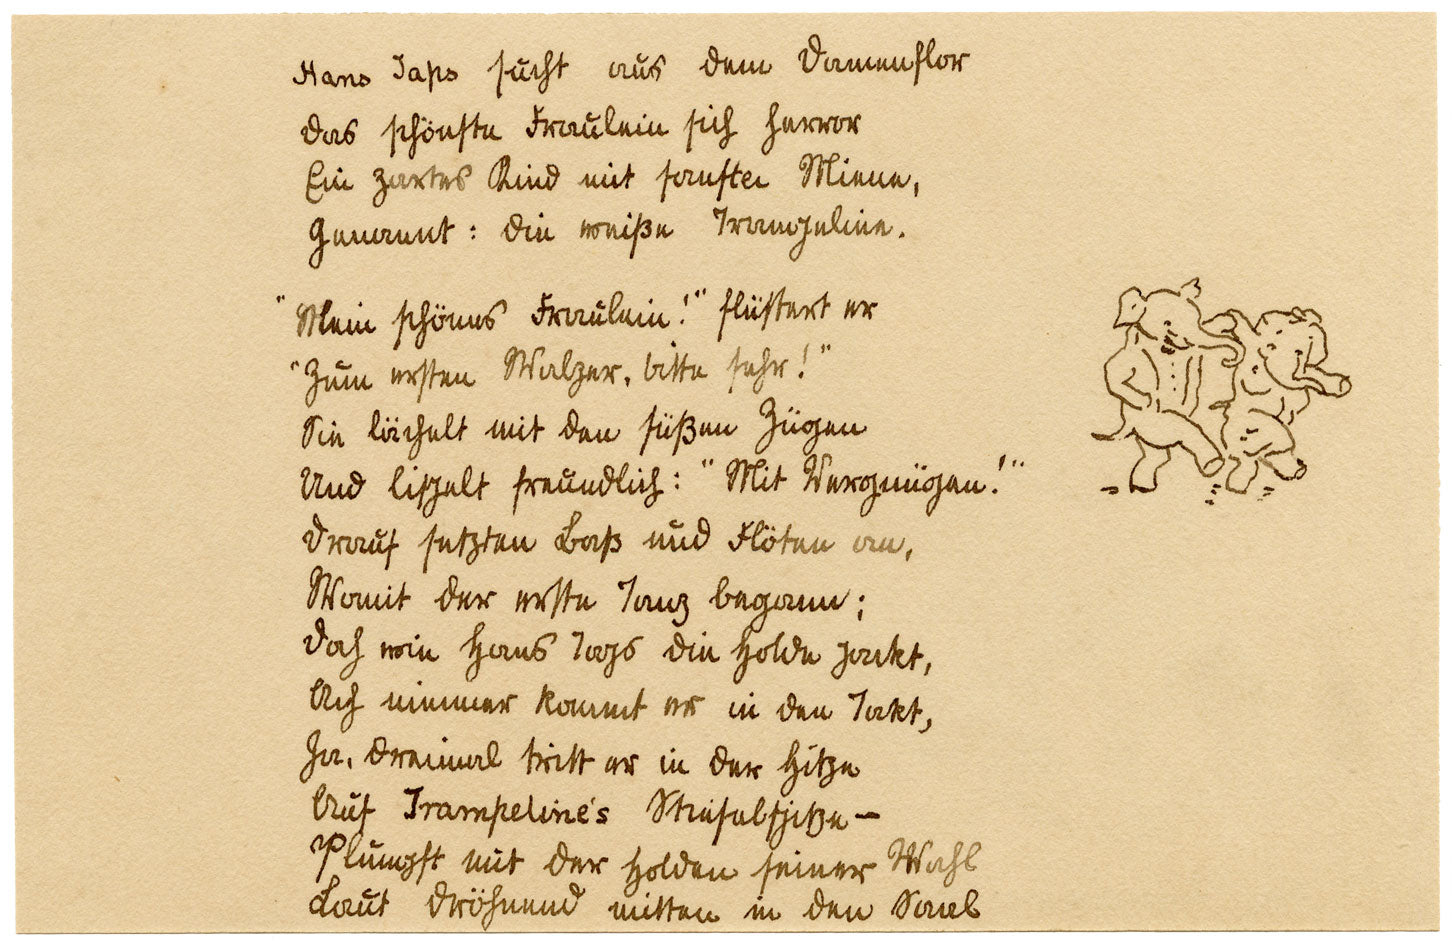 Hans Taps sucht aus dem Damenflor
Das schönste Fräulein sich hervor
Ein zartes Kind mit sanfter Miene,
Genannt: die weiße Trampeline.
"Mein schönes Fräulein!" flüstert er
"Zum ersten Walzer, bitte sehr!"
Sie lächelt mit den süßen Zügen
Und lispelt freundlich: "Mit Vergnügen!"
Drauf setzten Baß und Flöten an,
Womit der erste Tanz begann;
Doch wie Hans Taps die Holde packt,
Ach nimmer kommt er in den Takt,
Ja, dreimal tritt er in der Hitze
Auf Trampeline's Stiefelspitze –
Plumpst mit der Holden seiner Wahl
Laut dröhnend mitten in den Saal